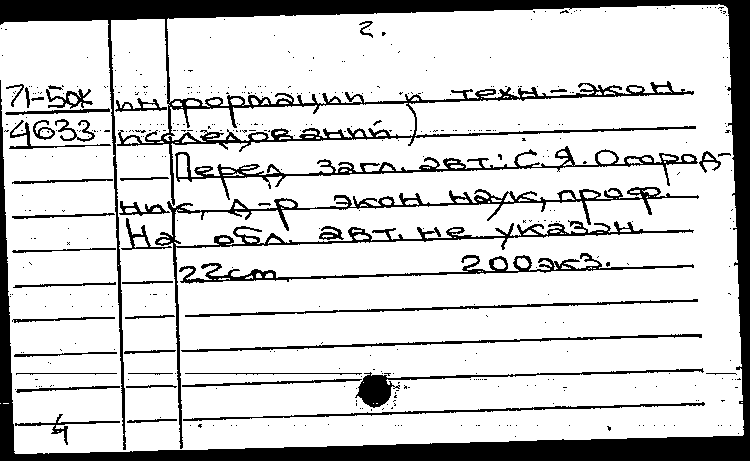 2.
71-5ок информации и техн.-экон.
4633 исследований.)
Перед загл. авт.: С. Я. Огород-
ник, д-р экон. наук, проф.
На обл. авт. не указан.
22cm 200экз.
4